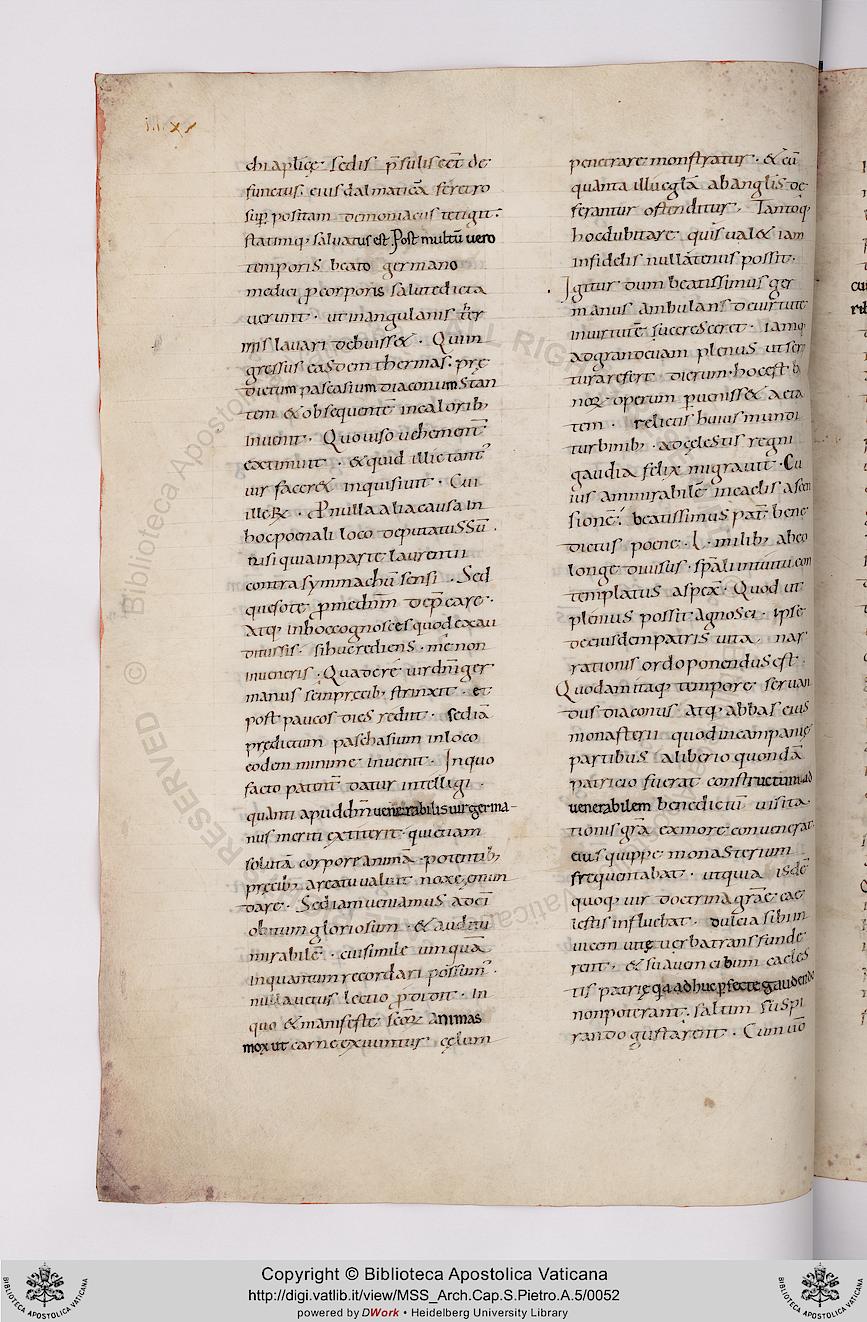 chi aplicę· sedis p̄sulis eēt de
functus. eius dalmaticā feretro
sup̱ positam demoniacus tetigit:
statimq; salvatus est Post multū vero
temporis beato germano
medici p̱ corporis salute dicta
uerunt· ut in angulanis t̄er
mis lauari debuisset. Qui in
gressus easdem thermas. prę
dictum pascasium diaconum stan
tem & obsequentē in calorib;
inuenit. Quo uiso uehement̄
extimuit. & quid illic tant'
uir facer& inquisiuit· Cui
ille R̄x. P̱ nulla alia causa in
hoc poenali loco deputatus sū.
nisi quia in parte laurentii
contra symmachū sensi. Sed
quęso te p̱ me dn̄m dep̄care·
atq; in hoc cognosces quod exau
ditus sis. si huc rediens· me non
inueneris. Qua de re uir dn̄i ger
manus se in precib; strinxit. et
post paucos dies rediit· sed iā
prędictum paschasium in loco
eodem minime inuenit. In quo
facto patent̄ datur intelligi.
quanti apud dm̄ venerabilis vir germa-
nus meriti extiterit· qui etiam
solutā corpore animā potentib;
pręcib; a reatu ualuit noxę emun
dare. Sed iam ueniamus ad ei'
obitum gloriosum· & auditu
mirabilē. cui simile umquā
inquantum recordari possum'.
nulla uetus lectio p̱didit· In
quo & manifeste scōꝝ animas
mox ut carne exuuntur· cęlum
penetrare monstratur· & cū
quanta illuc glā ab anglis de
ferantur ostenditur, Tantoq;
hoc dubitare· quis ual& iam
infidelis nullatenus possit.
Igitur dum beatissimus ger
manus ambulans de uirtute
in uirtutē succresceret. iamq;
ad grandeuam plenus ut scr
tura refert dierum· hoc est b
noꝝ operum p̱uenisset aeta
tem. relictis huius mundi
turbinib;. ad cęlestis regni
gaudia felix migrauit· Cu
ius ammirabilē in caelis ascen
sionē: beatissimus pat' bene
dictus poene· L· milib; abeo
longe diuisus· sp̄ali intuitu con
templatus aspex̄. Quod ut
plenius possit agnosci. ipse
de eiusdem patris uita. nar
rationis ordo ponendus est.
Quodam itaq; tempore seruan
dus diaconus atq; abbas eius
monasterii quod in campanię
partibus a liberio quondā
patricio fuerat constructum ad
venerabilem benedictū uisita
tionis gr̄a ex more conuenerat
eius quippe monasterium
frequentabat. ut quia isdē
quoq; uir doctrina gr̄ae cae
lestis influebat. dulcia sibi in
uicem uitę uerba transfunde
rent. & suauem cibum caeles
tis patrię q̱a adhuc p̱fecte gaudendo
non poterant. saltim suspi
rando gustarent. Cum uō
Copyright © Biblioteca Apostolica Vaticana
http://digi.vatlib.it/view/MSS_Arch.Cap.S.Pietro.A.5/0052
powered by DWork • Heidelberg University Library